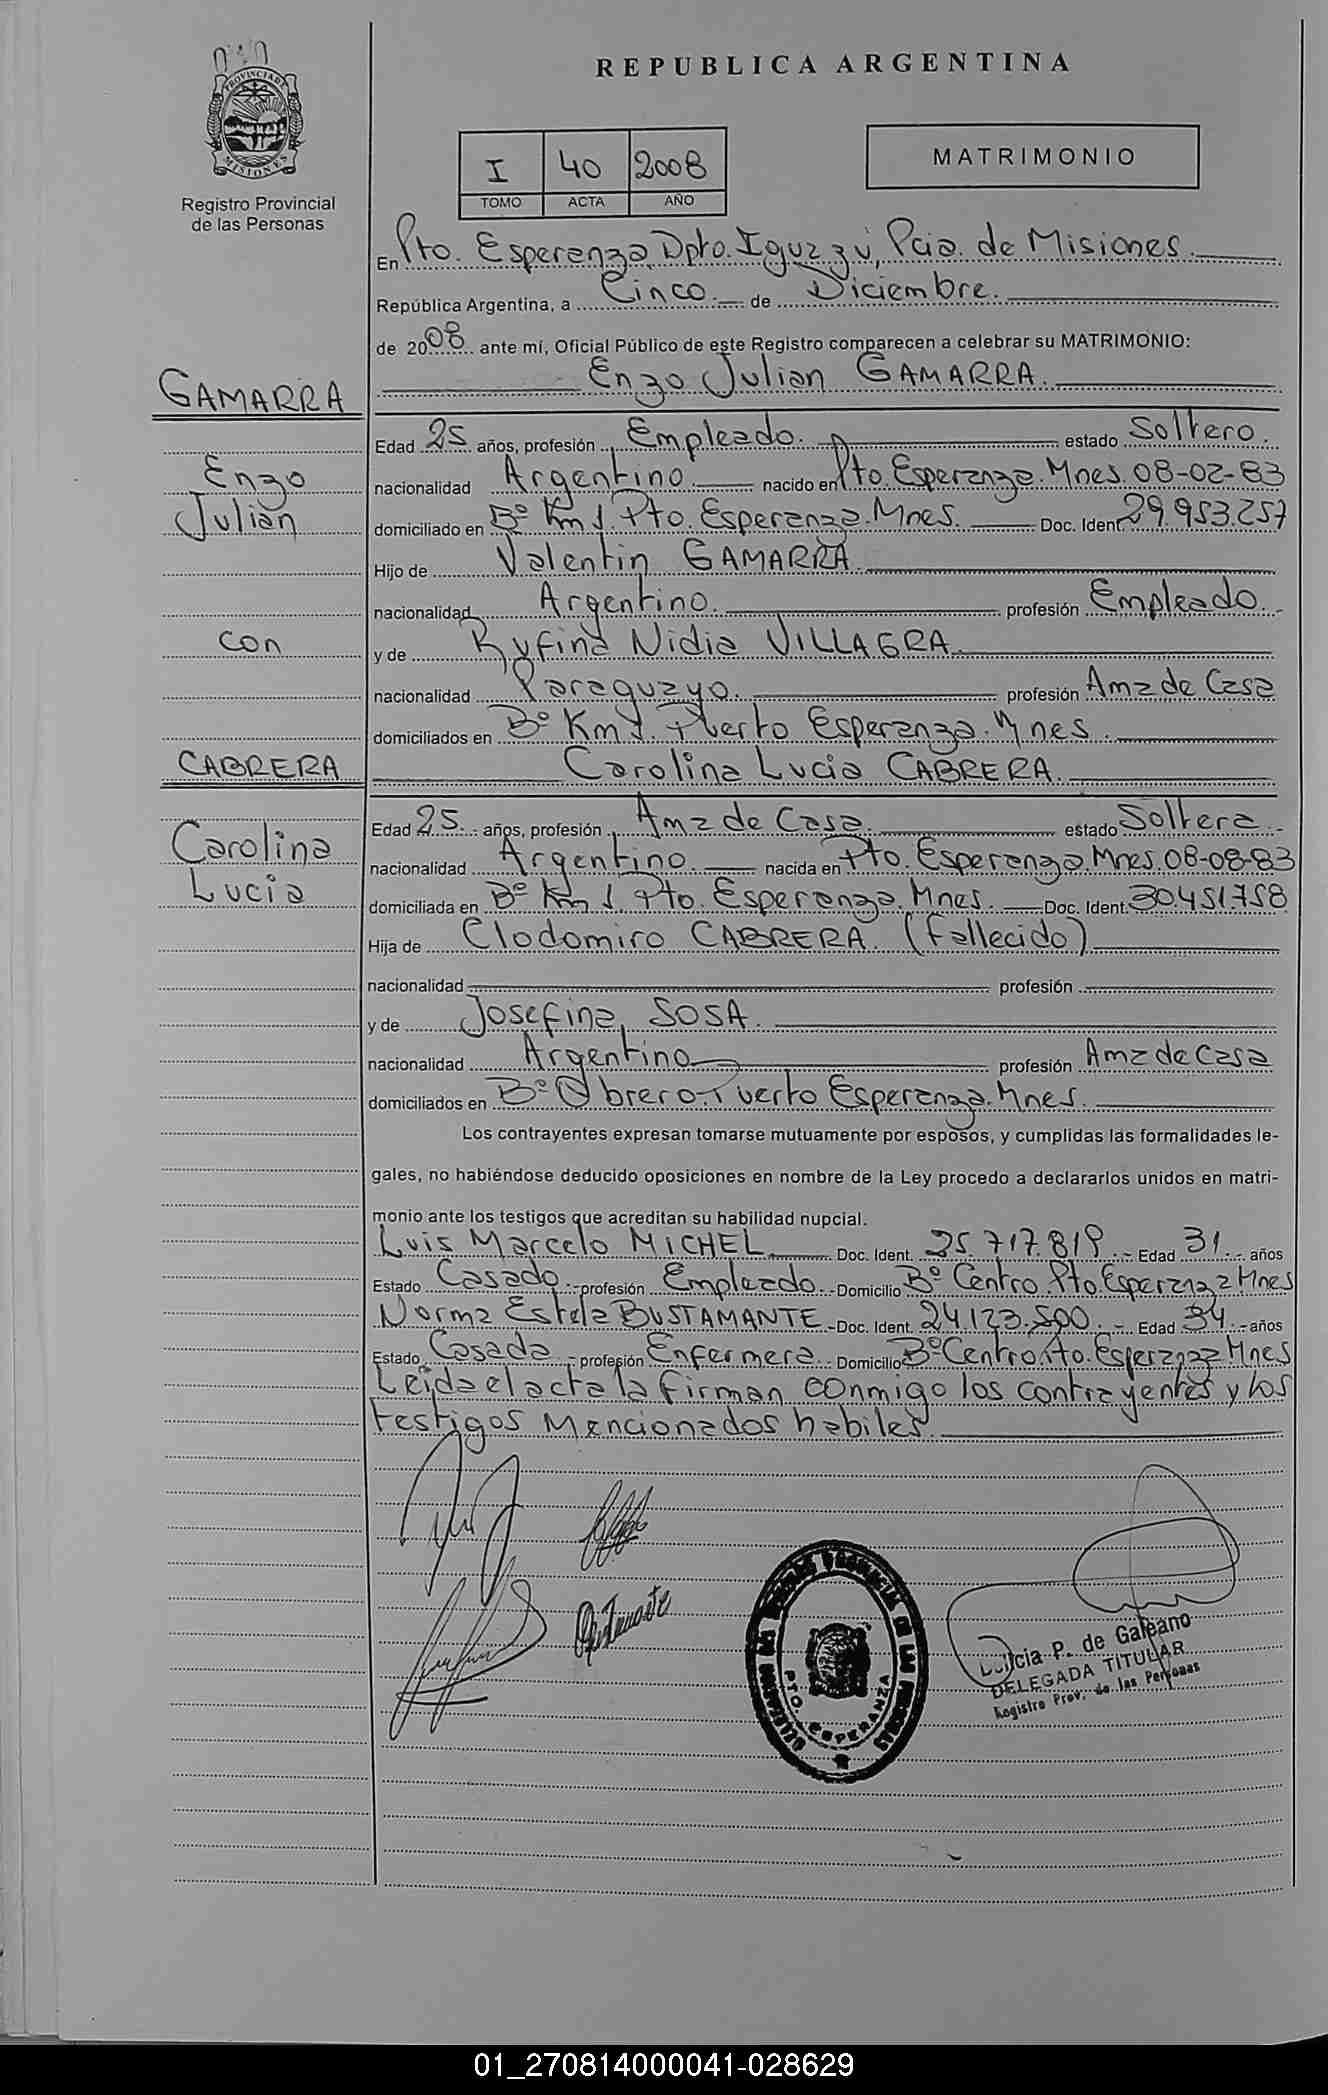 PROVINCIA DE
MISIONES
Registro Provincial
de las Personas
REPUBLICA ARGENTINA
I 40 2008
TOMO ACTA AÑO
MATRIMONIO
En Pto. Esperanza, Dpto. Iguazú, Pcia. de Misiones.
República Argentina, a Cinco. de Diciembre.
de 2008 ante mí, Oficial Público de este Registro comparecen a celebrar su MATRIMONIO:
GAMARRA
Enzo Julian GAMARRA.
Edad 25 años, profesión Empleado. estado Soltero.
Enzo
nacionalidad Argentino. nacido en Pto. Esperanza. Mnes. 08-02-83
Julián
domiciliado en Bº Km 1. Pto. Esperanza. Mnes. Doc. Ident. 29.953.257
Hijo de Valentin GAMARRA
nacionalidad Argentino. profesión Empleado.
con
y de Rufina Nidia VILLAGRA.
nacionalidad Paraguayo. profesión Ama de Casa
domiciliados en Bº Km 1. Puerto Esperanza. Mnes.
CABRERA
Carolina Lucia CABRERA.
Edad 25 años, profesión Ama de Casa. estado Soltera.
Carolina
nacionalidad Argentino. nacida en Pto. Esperanza. Mnes. 08-08-83
Lucia
domiciliada en Bº Km 1. Pto. Esperanza. Mnes. Doc. Ident. 30.451.758
Hija de Clodomiro CABRERA. (Fallecido)
nacionalidad profesión
y de Josefina SOSA.
nacionalidad Argentino profesión Ama de Casa
domiciliados en Bº Obrero. Puerto Esperanza. Mnes.
Los contrayentes expresan tomarse mutuamente por esposos, y cumplidas las formalidades le-
gales, no habiéndose deducido oposiciones en nombre de la Ley procedo a declararlos unidos en matri-
monio ante los testigos que acreditan su habilidad nupcial.
Luis Marcelo MICHEL Doc. Ident. 25.717.819.- Edad 31.- años
Estado Casado.- profesión Empleado.- Domicilio Bº Centro. Pto. Esperanza Mnes
Norma Estela BUSTAMANTE.- Doc. Ident. 24.123.500.- Edad 34.- años
Estado Casada.- profesión Enfermera.- Domicilio Bº Centro. Pto. Esperanza Mnes
Leida el acta la firman conmigo los contrayentes y los
testigos mencionados habiles.
PTO. ESPERANZA
P. de Galeano
DELEGADA TITULAR
Registro Prov. de las Personas
01_270814000041-028629